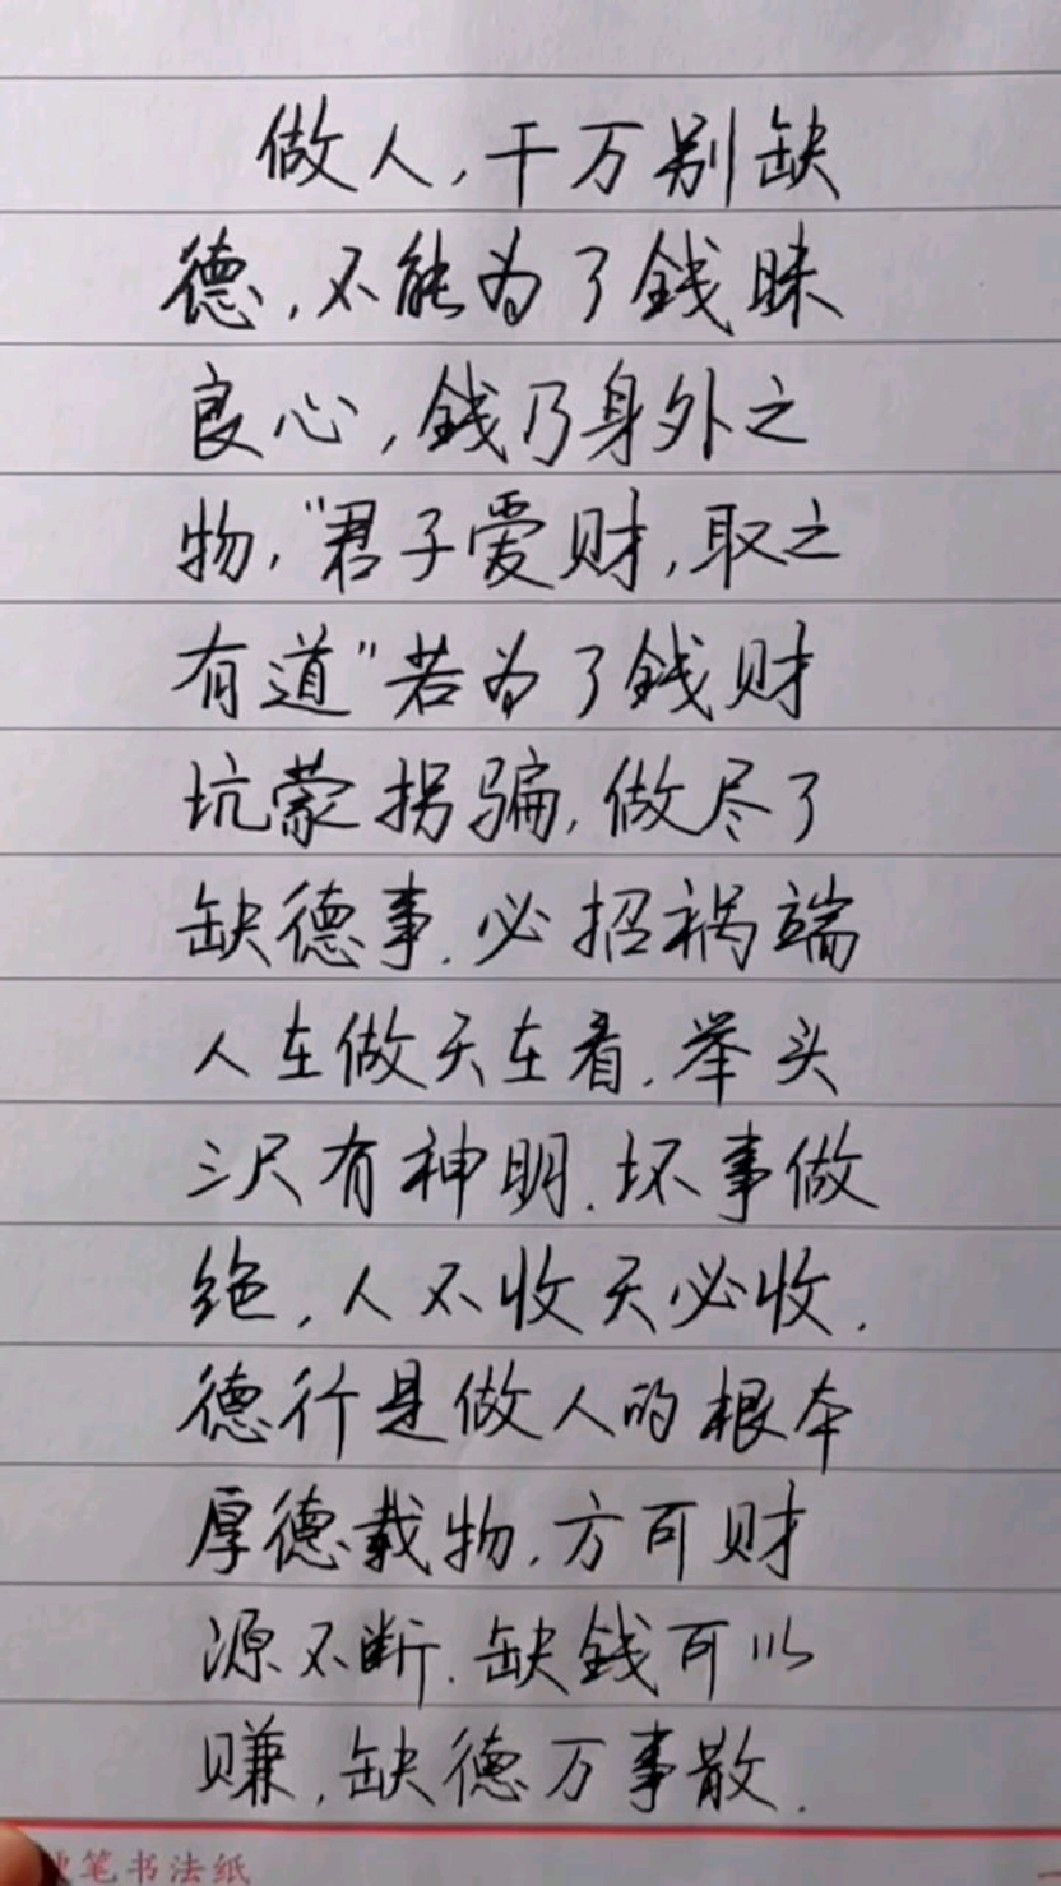 做人,千万别缺
德,不能为了钱昧
良心,钱乃身外之
物,"君子爱财,取之
有道"若为了钱财
坑蒙拐骗,做尽了
缺德事.必招祸端
人在做天在看.举头
三尺有神明.坏事做
绝,人不收天必收.
德行是做人的根本
厚德载物.方可财
源不断.缺钱可以
赚,缺德万事散.
笔书法纸